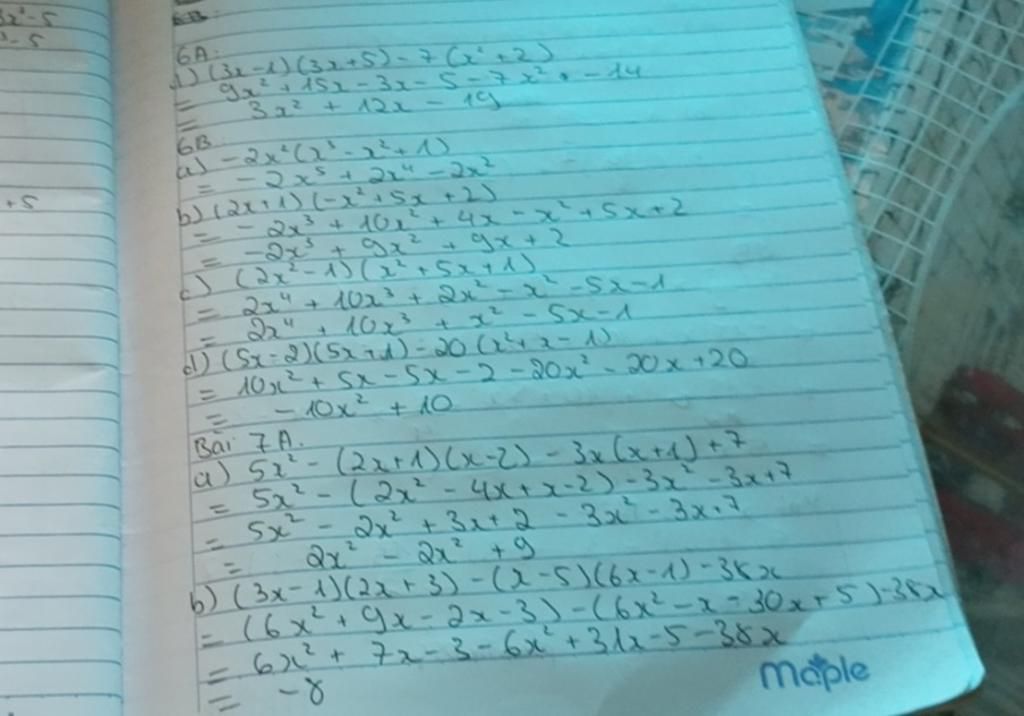 3x²-5
³-5
+5
6B:
6A:
d) (3x-1)(3x+5) - 7(x²+2)
= 9x² + 15x - 3x - 5 - 7x² - 14
= 3x² + 12x - 19
6B
a) -2x²(x³ - x² + 1)
= -2x⁵ + 2x⁴ - 2x²
b) (2x+1)(-x² + 5x + 2)
= -2x³ + 10x² + 4x - x² + 5x + 2
= -2x³ + 9x² + 9x + 2
c) (2x² - 1)(x² + 5x + 1)
= 2x⁴ + 10x³ + 2x² - x² - 5x - 1
= 2x⁴ + 10x³ + x² - 5x - 1
d) (5x-2)(5x+1) - 20(x²+x-1)
= 10x² + 5x - 5x - 2 - 20x² - 20x + 20
= -10x² + 10
Bài 7A.
a) 5x² - (2x+1)(x-2) - 3x(x+1) + 7
= 5x² - (2x² - 4x + x - 2) - 3x² - 3x + 7
= 5x² - 2x² + 3x + 2 - 3x² - 3x + 7
= 2x² - 2x² + 9
b) (3x-1)(2x+3) - (x-5)(6x-1) - 38x
= (6x² + 9x - 2x - 3) - (6x² - x - 30x + 5) - 38x
= 6x² + 7x - 3 - 6x² + 31x - 5 - 38x
= -8
maple